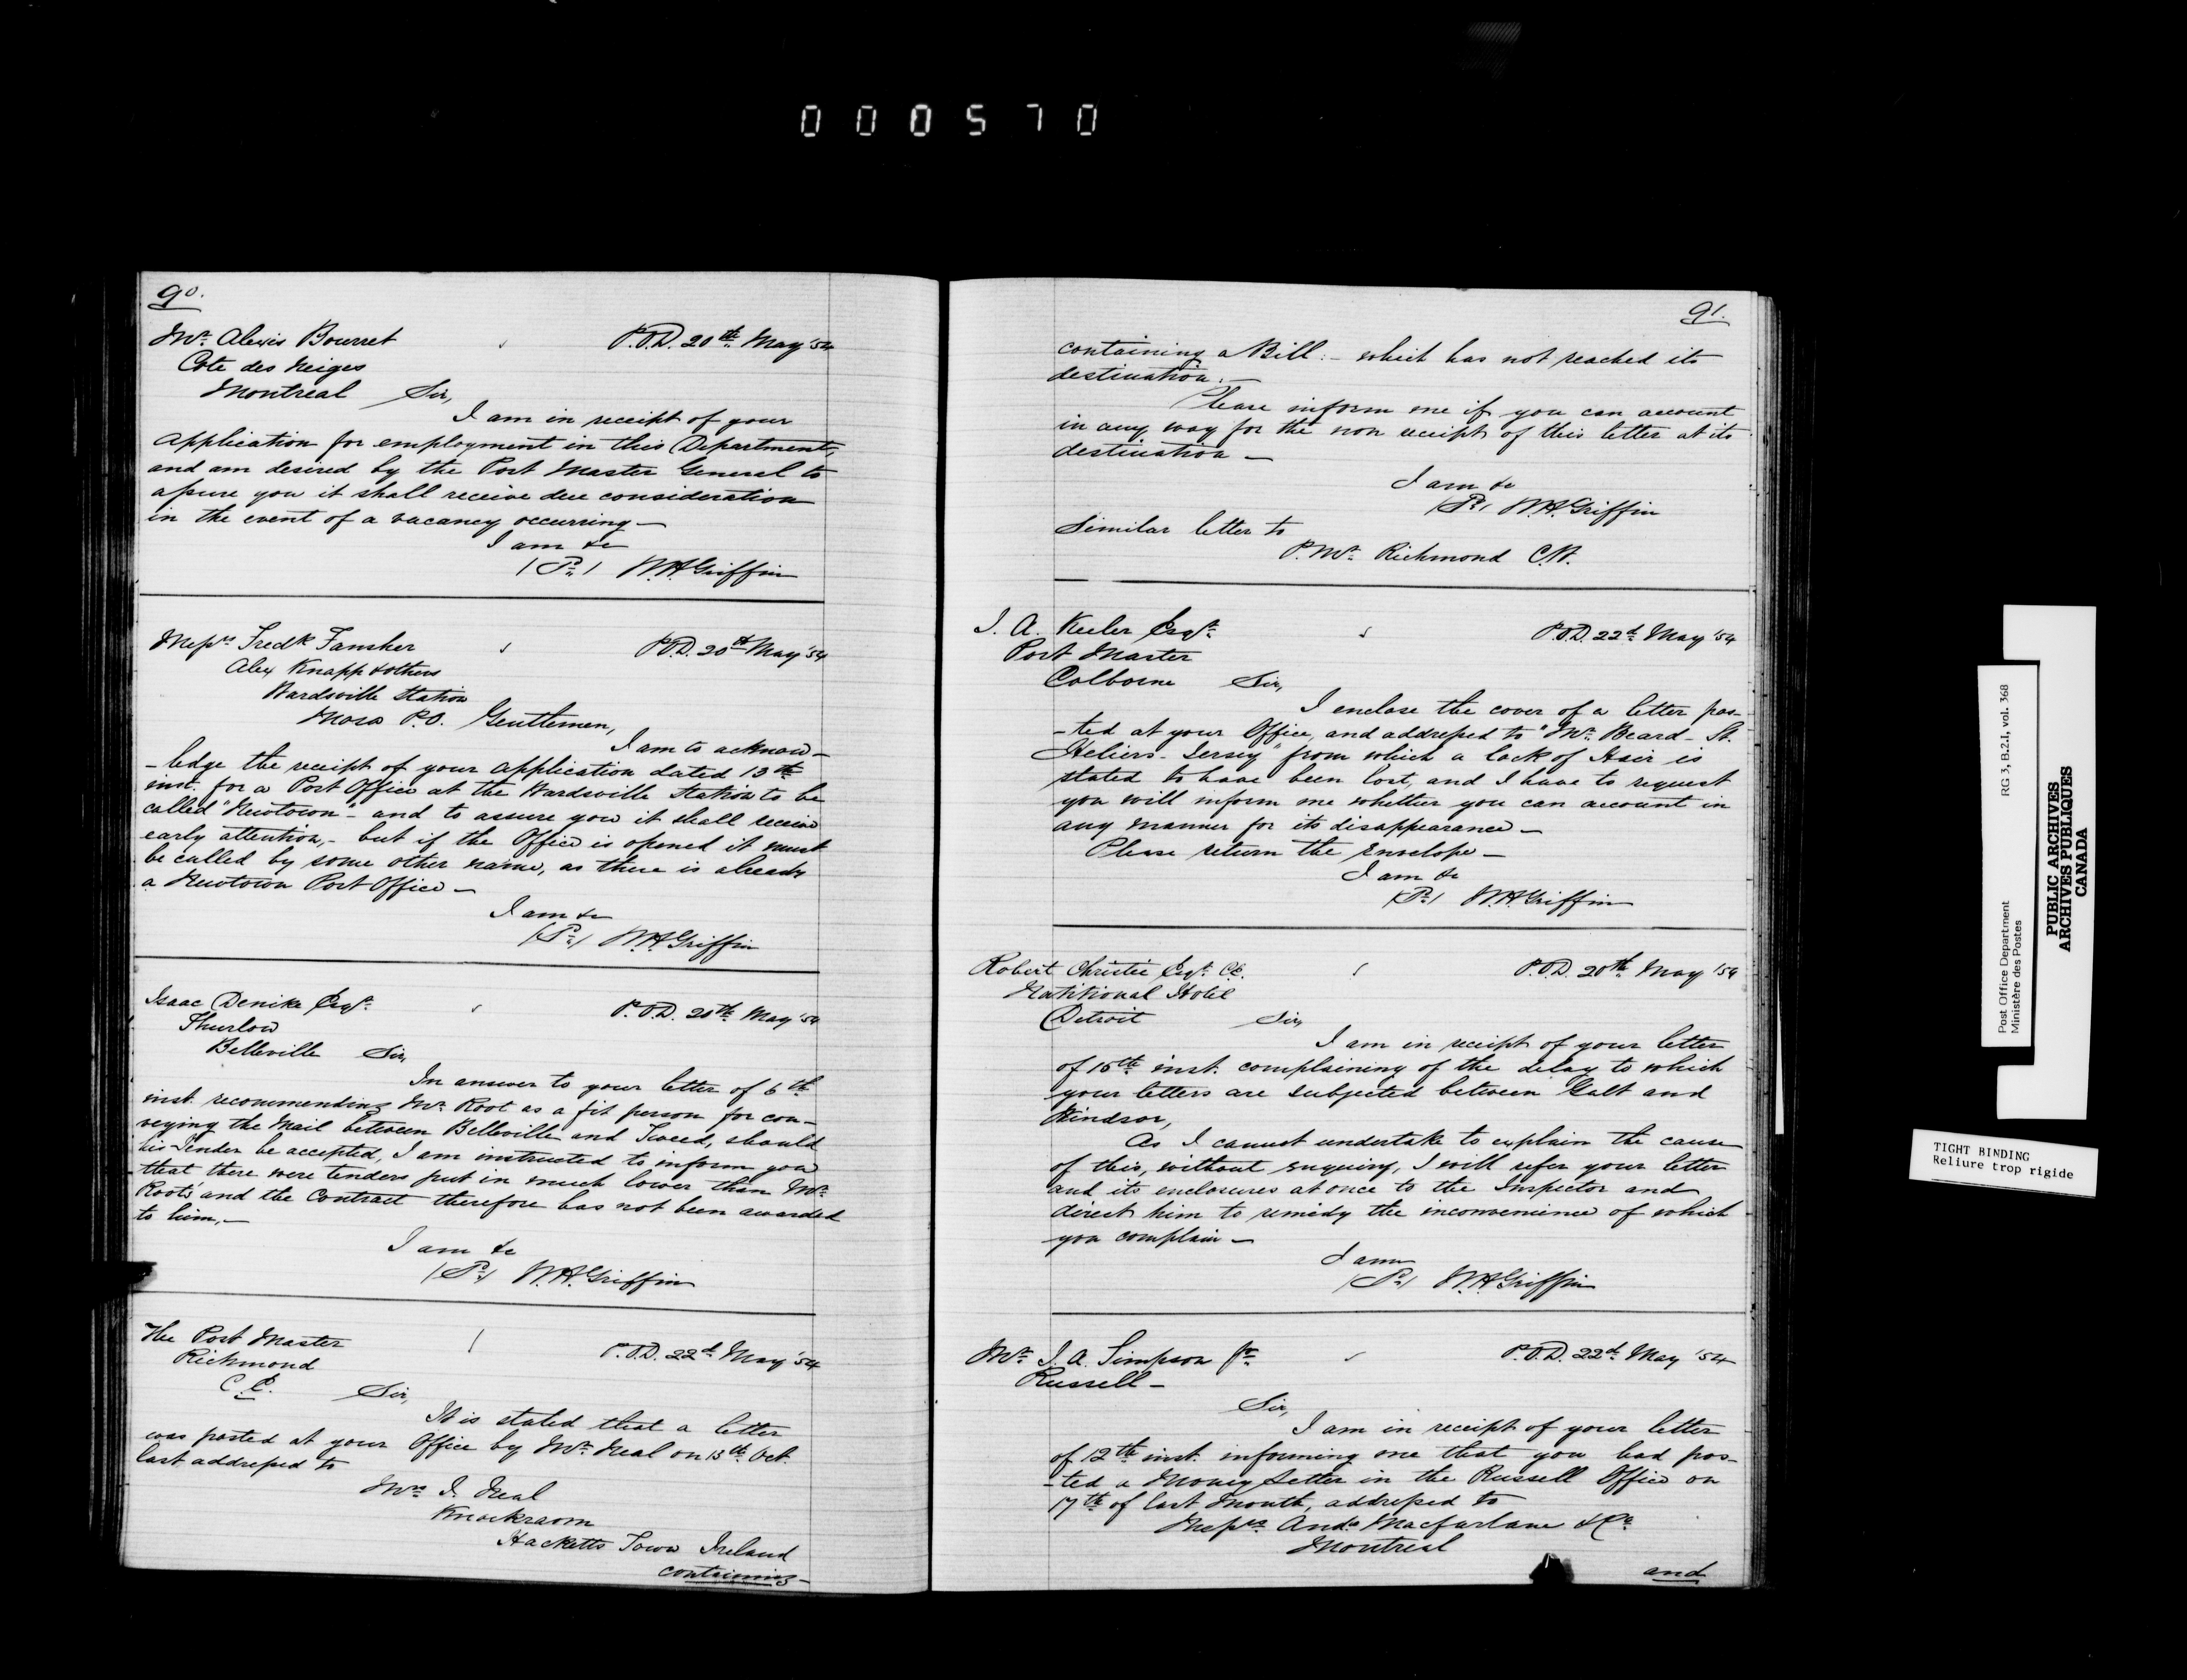 000570
90.
Mr. Alexis Bourret P.O.D. 20th May '54
Cote des Neiges
Montreal Sir,
I am in receipt of your
application for employment in this Department,
and am desired by the Post Master General to
assure you it shall receive due consideration
in the event of a vacancy occurring —
I am &c
W.H. Griffin
Messrs Fredk Fansher P.O.D. 20th May '54
Alex Knapp & others
Wardsville Station
Mosa P.O. Gentlemen,
I am to acknow-
-ledge the receipt of your application dated 13th
inst. for a Post Office at the Wardsville Station to be
called "Newtown" - and to assure you it shall receive
early attention, - but if the Office is opened it must
be called by some other name, as there is already
a Newtown Post Office —
I am &c
W.H. Griffin
Isaac Denike Esqr. P.O.D. 20th May '54
Thurlow
Belleville Sir,
In answer to your letter of 6th
inst. recommending Mr. Root as a fit person for con-
veying the Mail between Belleville and Tweed, should
his Tender be accepted, I am instructed to inform you
that there were tenders put in much lower than Mr.
Root's and the Contract therefore has not been awarded
to him, —
I am &c
W.H. Griffin
The Post Master P.O.D. 22d May '54
Richmond
C.E. Sir,
It is stated that a letter
was posted at your Office by Mr. Neal on 13th Oct.
last addressed to
Mrs I. Neal
Knockraom
Hacketts Town Ireland
containing -
91.
containing a Bill: - which has not reached its
destination. —
Please inform me if you can account
in any way for the non receipt of this letter at its
destination —
I am &c
W.H. Griffin
Similar letter to
P. Mr. Richmond C.W.
J. A. Keeler Esqr. P.O.D. 22d May '54
Post Master
Colborne Sir,
I enclose the cover of a letter pos-
-ted at your Office, and addressed to "Mr. Beard - St.
Heliers - Jersey" from which a lock of Hair is
stated to have been lost, and I have to request
you will inform me whether you can account in
any manner for its disappearance —
Please return the Envelope —
I am &c
W.H. Griffin
Robert Christie Esqr. P.O.D. 20th May '54
Natitional Hotel
Detroit Sir,
I am in receipt of your letter
of 15th inst. complaining of the delay to which
your letters are subjected between Galt and
Windsor,
As I cannot undertake to explain the cause
of this, without enquiry, I will refer your letter
and its enclosures at once to the Inspector and
direct him to remedy the inconvenience of which
you complain —
I am
W.H. Griffin
Mr. J. A. Simpson Jr. P.O.D. 22d May '54
Russell —
Sir,
I am in receipt of your letter
of 12th inst. informing me that you had pos-
-ted a Money Letter in the Russell Office on
17th of last Month, addressed to
Messrs Andw Macfarlane & Co.
Montreal
and
Post Office Department RG 3, B.2.1, vol. 368
Ministère des Postes
PUBLIC ARCHIVES
ARCHIVES PUBLIQUES
CANADA
TIGHT BINDING
Reliure trop rigide